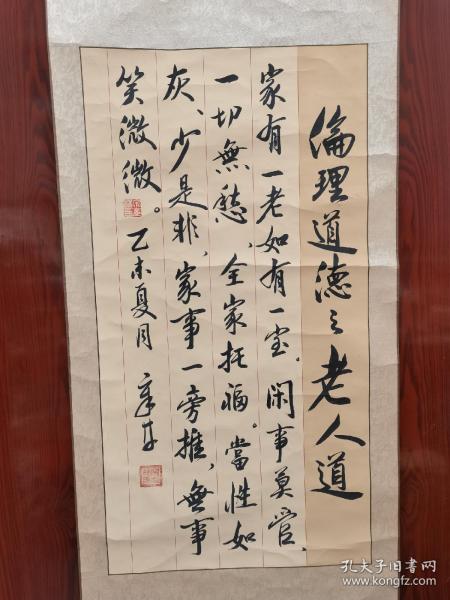 倫理道德之老人道
家有一老如有一宝，闲事莫管、
一切無愁、全家托福。當性如
灰、少是非，家事一旁推，無事
笑微微。
乙未夏月
孔夫子旧书网
www.kongfz.com